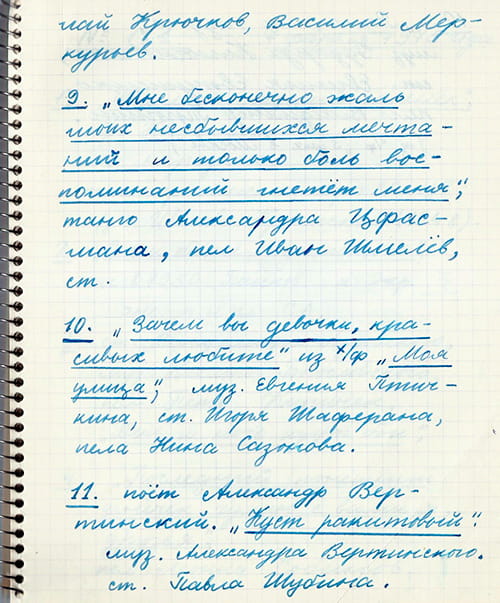 лай Крючков, Василий Мер-
курьев.
9. „Мне бесконечно жаль
моих несбывшихся мечта-
ний и только боль вос-
поминаний гнетёт меня",
танго Александра Цфас-
мана, пел Иван Шмелёв,
ст.
10. „Зачем вы девочки, кра-
сивых любите" из х/ф „Моя
улица", муз. Евгения Птич-
кина, ст. Игоря Шаферана,
пела Нина Сазонова.
11. поёт Александр Вер-
тинский. „Куст ракитовый".
муз. Александра Вертинского.
ст. Павла Шубина.